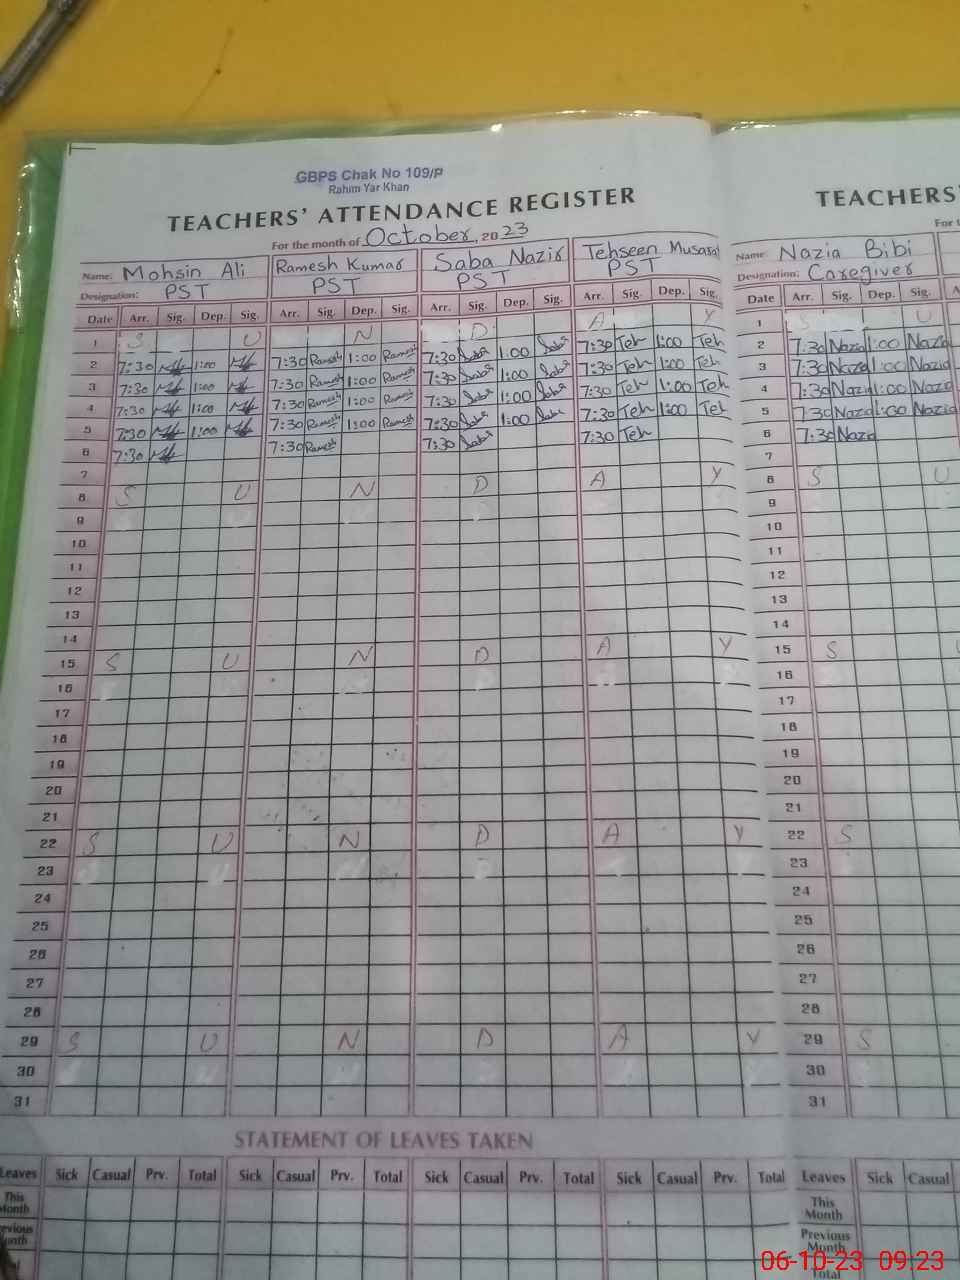 GBPS Chak No 109/P
Rahim Yar Khan
TEACHERS' ATTENDANCE REGISTER
For the month of October, 2023
Name: Mohsin Ali Ramesh Kumar Saba Nazir Tehseen Musarat
Designation: PST PST PST PST
Date Arr. Sig. Dep. Sig. Arr. Sig. Dep. Sig. Arr. Sig. Dep. Sig. Arr. Sig. Dep. Sig.
1 S U N D A Y
2 7:30 1:00 7:30 Ramesh 1:00 Ramesh 7:30 Saba 1:00 Saba 7:30 Teh 1:00 Teh
3 7:30 1:00 7:30 Ramesh 1:00 Ramesh 7:30 Saba 1:00 Saba 7:30 Teh 1:00 Teh
4 7:30 1:00 7:30 Ramesh 1:00 Ramesh 7:30 Saba 1:00 Saba 7:30 Teh 1:00 Teh
5 7:30 1:00 7:30 Ramesh 1:00 Ramesh 7:30 Saba 1:00 Saba 7:30 Teh 1:00 Teh
6 7:30 7:30 Ramesh 7:30 Saba 7:30 Teh
7
8 S U N D A Y
9
10
11
12
13
14
15 S U N D A Y
16
17
18
19
20
21
22 S U N D A Y
23
24
25
26
27
28
29 S U N D A Y
30
31
STATEMENT OF LEAVES TAKEN
Leaves Sick Casual Prv. Total Sick Casual Prv. Total Sick Casual Prv. Total Sick Casual Prv. Total
This Month
Previous Month
TEACHERS'
For t
Name: Nazia Bibi
Designation: Caregiver
Date Arr. Sig. Dep. Sig. A
1 S U
2 7:30 Nazia 1:00 Nazia
3 7:30 Nazia 1:00 Nazia
4 7:30 Nazia 1:00 Nazia
5 7:30 Nazia 1:00 Nazia
6 7:30 Nazia
7
8 S U
9
10
11
12
13
14
15 S U
16
17
18
19
20
21
22 S
23
24
25
26
27
28
29 S
30
31
Leaves Sick Casual
This Month
Previous Month
Total
06-10-23 09:23